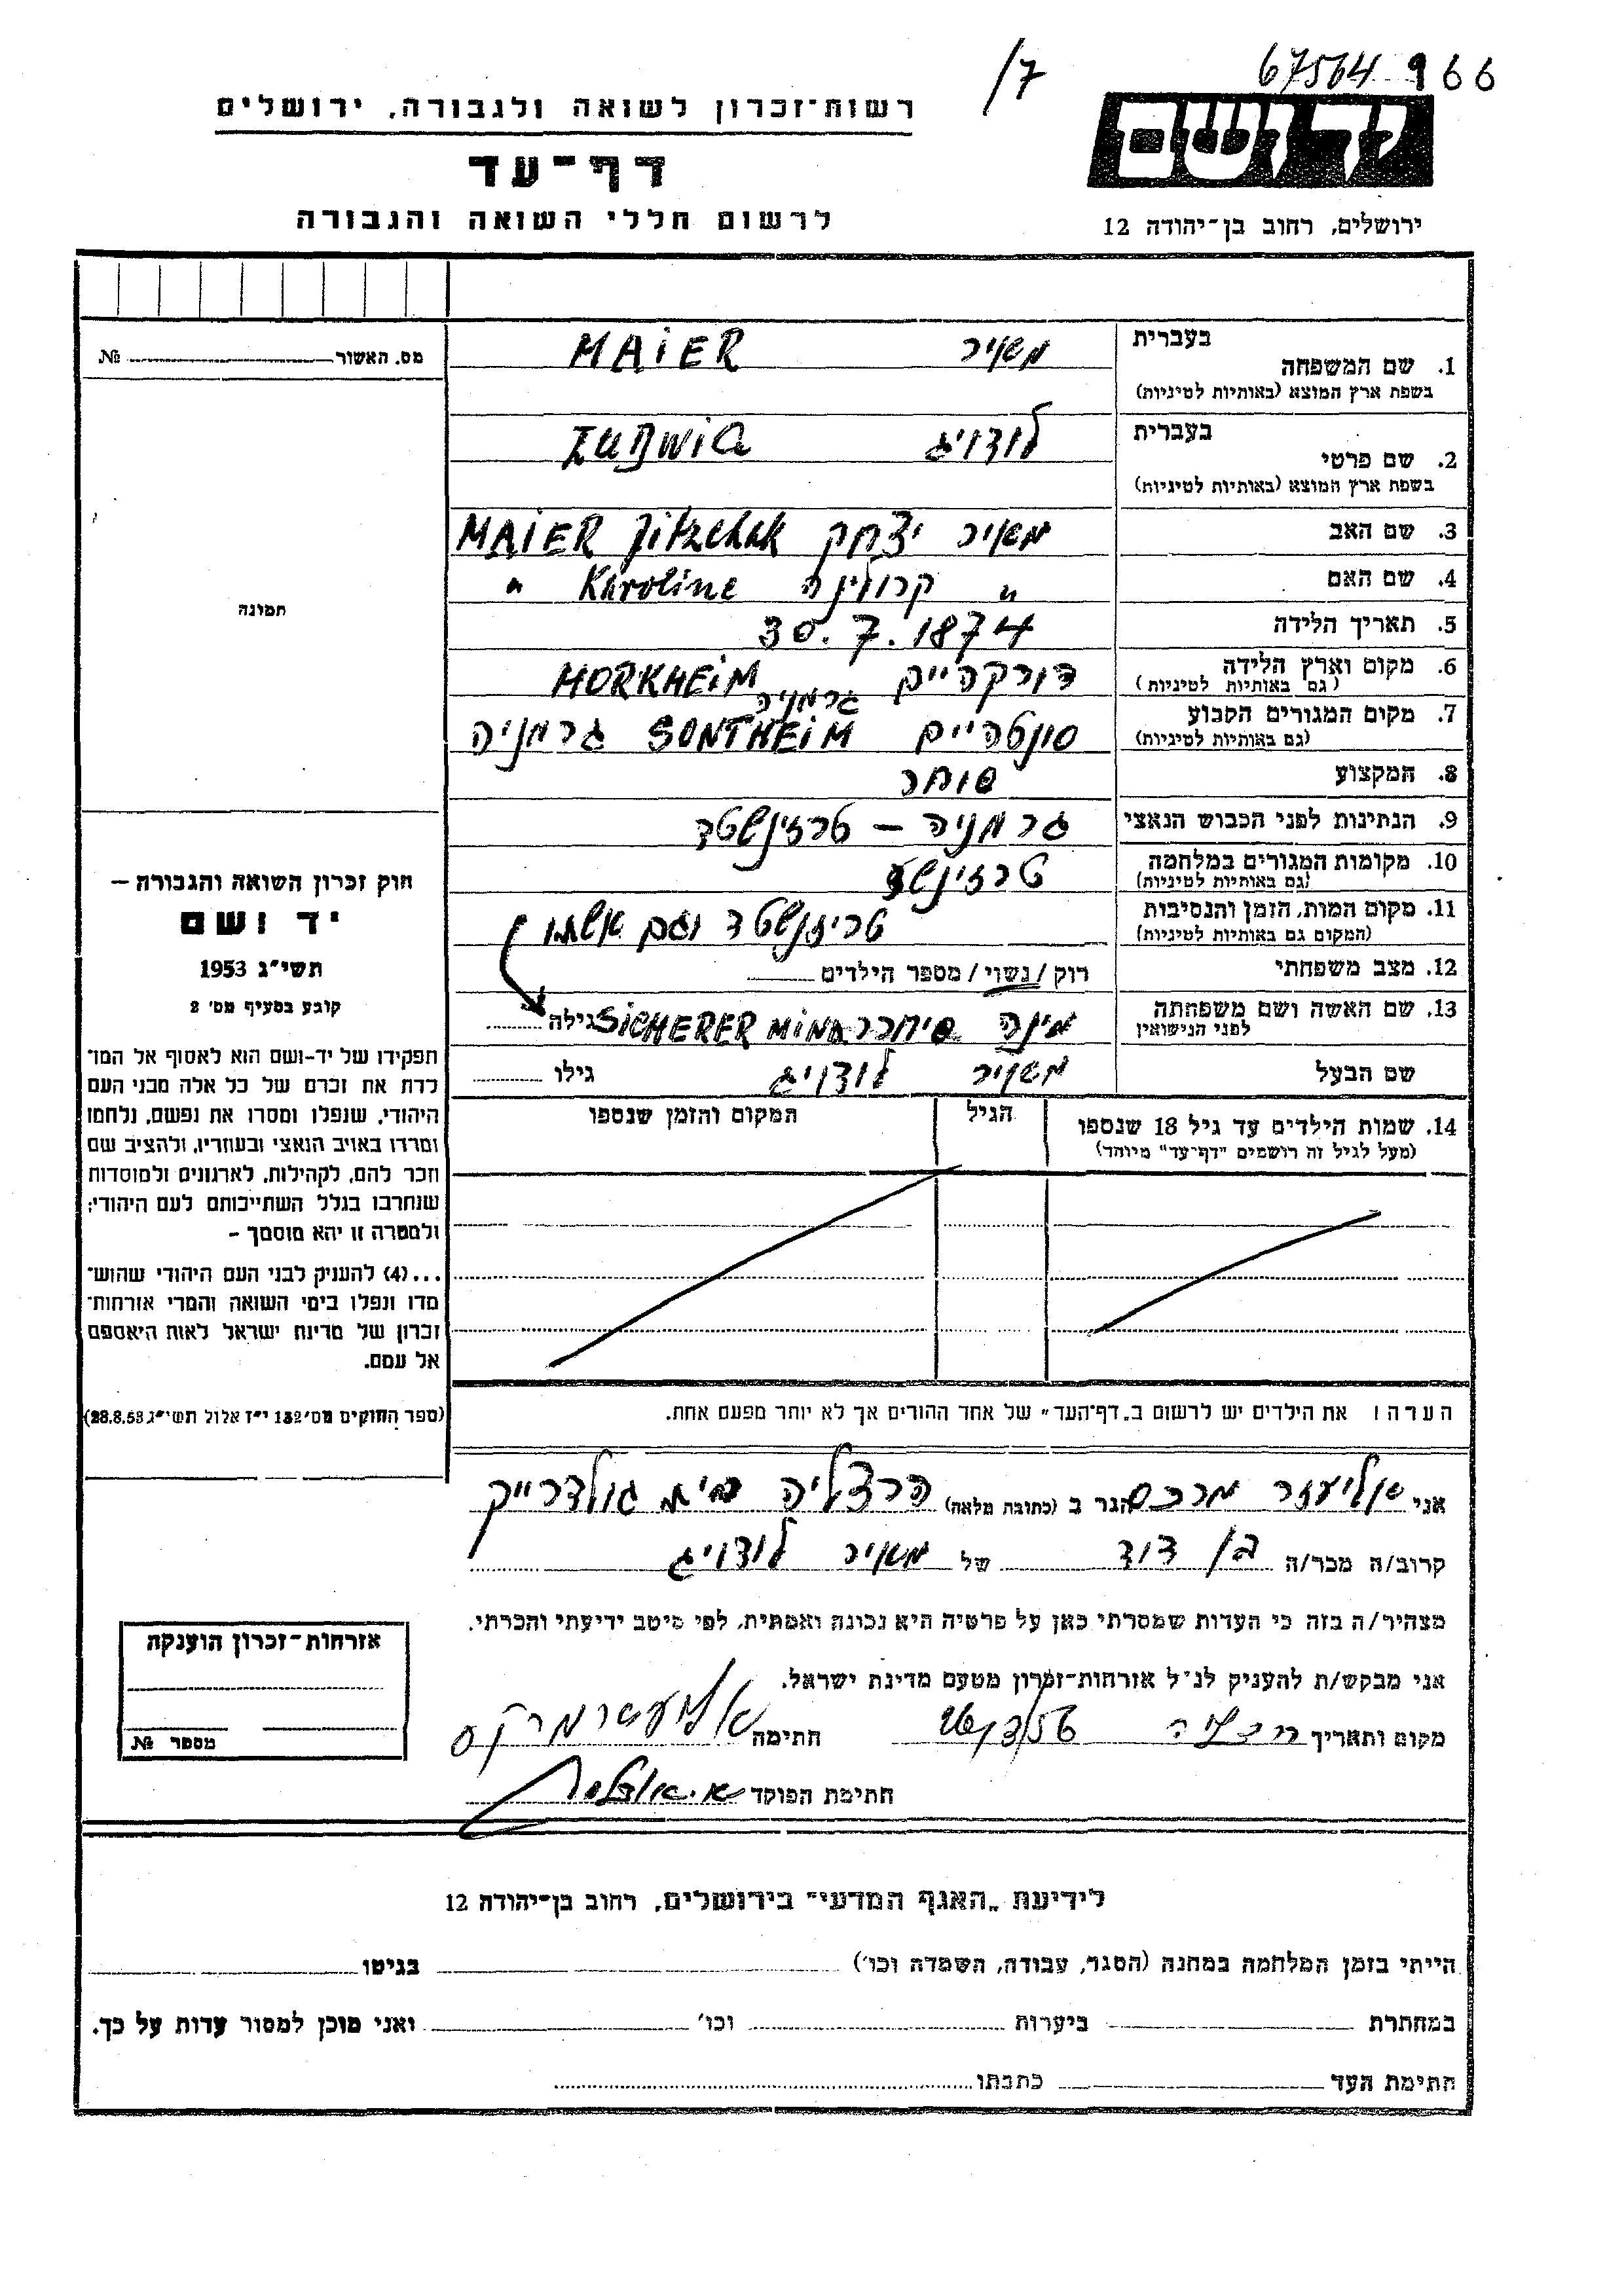 67564 966
/7
יד ושם
ירושלים, רחוב בן־יהודה 12
רשות־זכרון לשואה ולגבורה, ירושלים
דף־עד
לרשום חללי השואה והגבורה
מס. האשור № 
בעברית
1. שם המשפחה מאיר MAIER
בשפת ארץ המוצא (באותיות לטיניות)
בעברית
2. שם פרטי לודויג LUDWIG
בשפת ארץ המוצא (באותיות לטיניות)
3. שם האב מאיר יצחק MAIER Jitzchak
4. שם האם " קרולינה Karoline "
5. תאריך הלידה 30.7.1874
6. מקום וארץ הלידה MORKHEIM גרמניה
(גם באותיות לטיניות)
7. מקום המגורים הקבוע סונטהיים SONTHEIM גרמניה
(גם באותיות לטיניות)
8. המקצוע סוחר
9. הנתינות לפני הכבוש הנאצי גרמניה – טרזינשטד
10. מקומות המגורים במלחמה
(גם באותיות לטיניות)
11. מקום המות, הזמן והנסיבות טריזנשטד וגם אשתו
(המקום גם באותיות לטיניות)
12. מצב משפחתי רוק / נשוי / מספר הילדים
13. שם האשה ושם משפחתה מינה סיחרר SICHERER MINA גילה
לפני הנישואין
שם הבעל מאיר לודויג גילו
14. שמות הילדים עד גיל 18 שנספו הגיל המקום והזמן שנספו
(מעל לגיל זה רושמים "דף־עד" מיוחד)
תמונה
חוק זכרון השואה והגבורה –
יד ושם
תשי"ג 1953
קובע בסעיף מס' 2
תפקידו של יד-ושם הוא לאסוף אל המו־
לדת את זכרם של כל אלה מבני העם
היהודי, שנפלו ומסרו את נפשם, נלחמו
ומרדו באויב הנאצי ובעוזריו, ולהציב שם
וזכר להם, לקהילות, לארגונים ולמוסדות
שנחרבו בגלל השתייכותם לעם היהודי;
ולמטרה זו יהא מוסמך –
...(4) להעניק לבני העם היהודי שהוש־
מדו ונפלו בימי השואה והמרי אזרחות־
זכרון של מדינת ישראל לאות היאספם
אל עמם.
(ספר החוקים מס' 132 י"ז אלול תשי"ג 28.8.53)
הערה: את הילדים יש לרשום ב„דף־העד" של אחד ההורים אך לא יותר מפעם אחת.
אני אליעזר מרכס הגר ב (כתובת מלאה) הרצליה בית
קרוב/ה מכר/ה בן דוד של מאיר לודויג
מצהיר/ה בזה כי העדות שמסרתי כאן על פרטיה היא נכונה ואמתית, לפי מיטב ידיעתי והכרתי.
אני מבקש/ת להעניק לנ"ל אזרחות־זכרון מטעם מדינת ישראל.
מקום ותאריך הרצליה חתימה
חתימת הפוקד
אזרחות־זכרון הוענקה
מספר №
לידיעת „האגף המדעי" בירושלים, רחוב בן־יהודה 12
הייתי בזמן המלחמה במחנה (הסגר, עבודה, השמדה וכו') בגיטו
במחתרת ביערות וכו' ואני מוכן למסור עדות על כך.
חתימת העד כתבתו